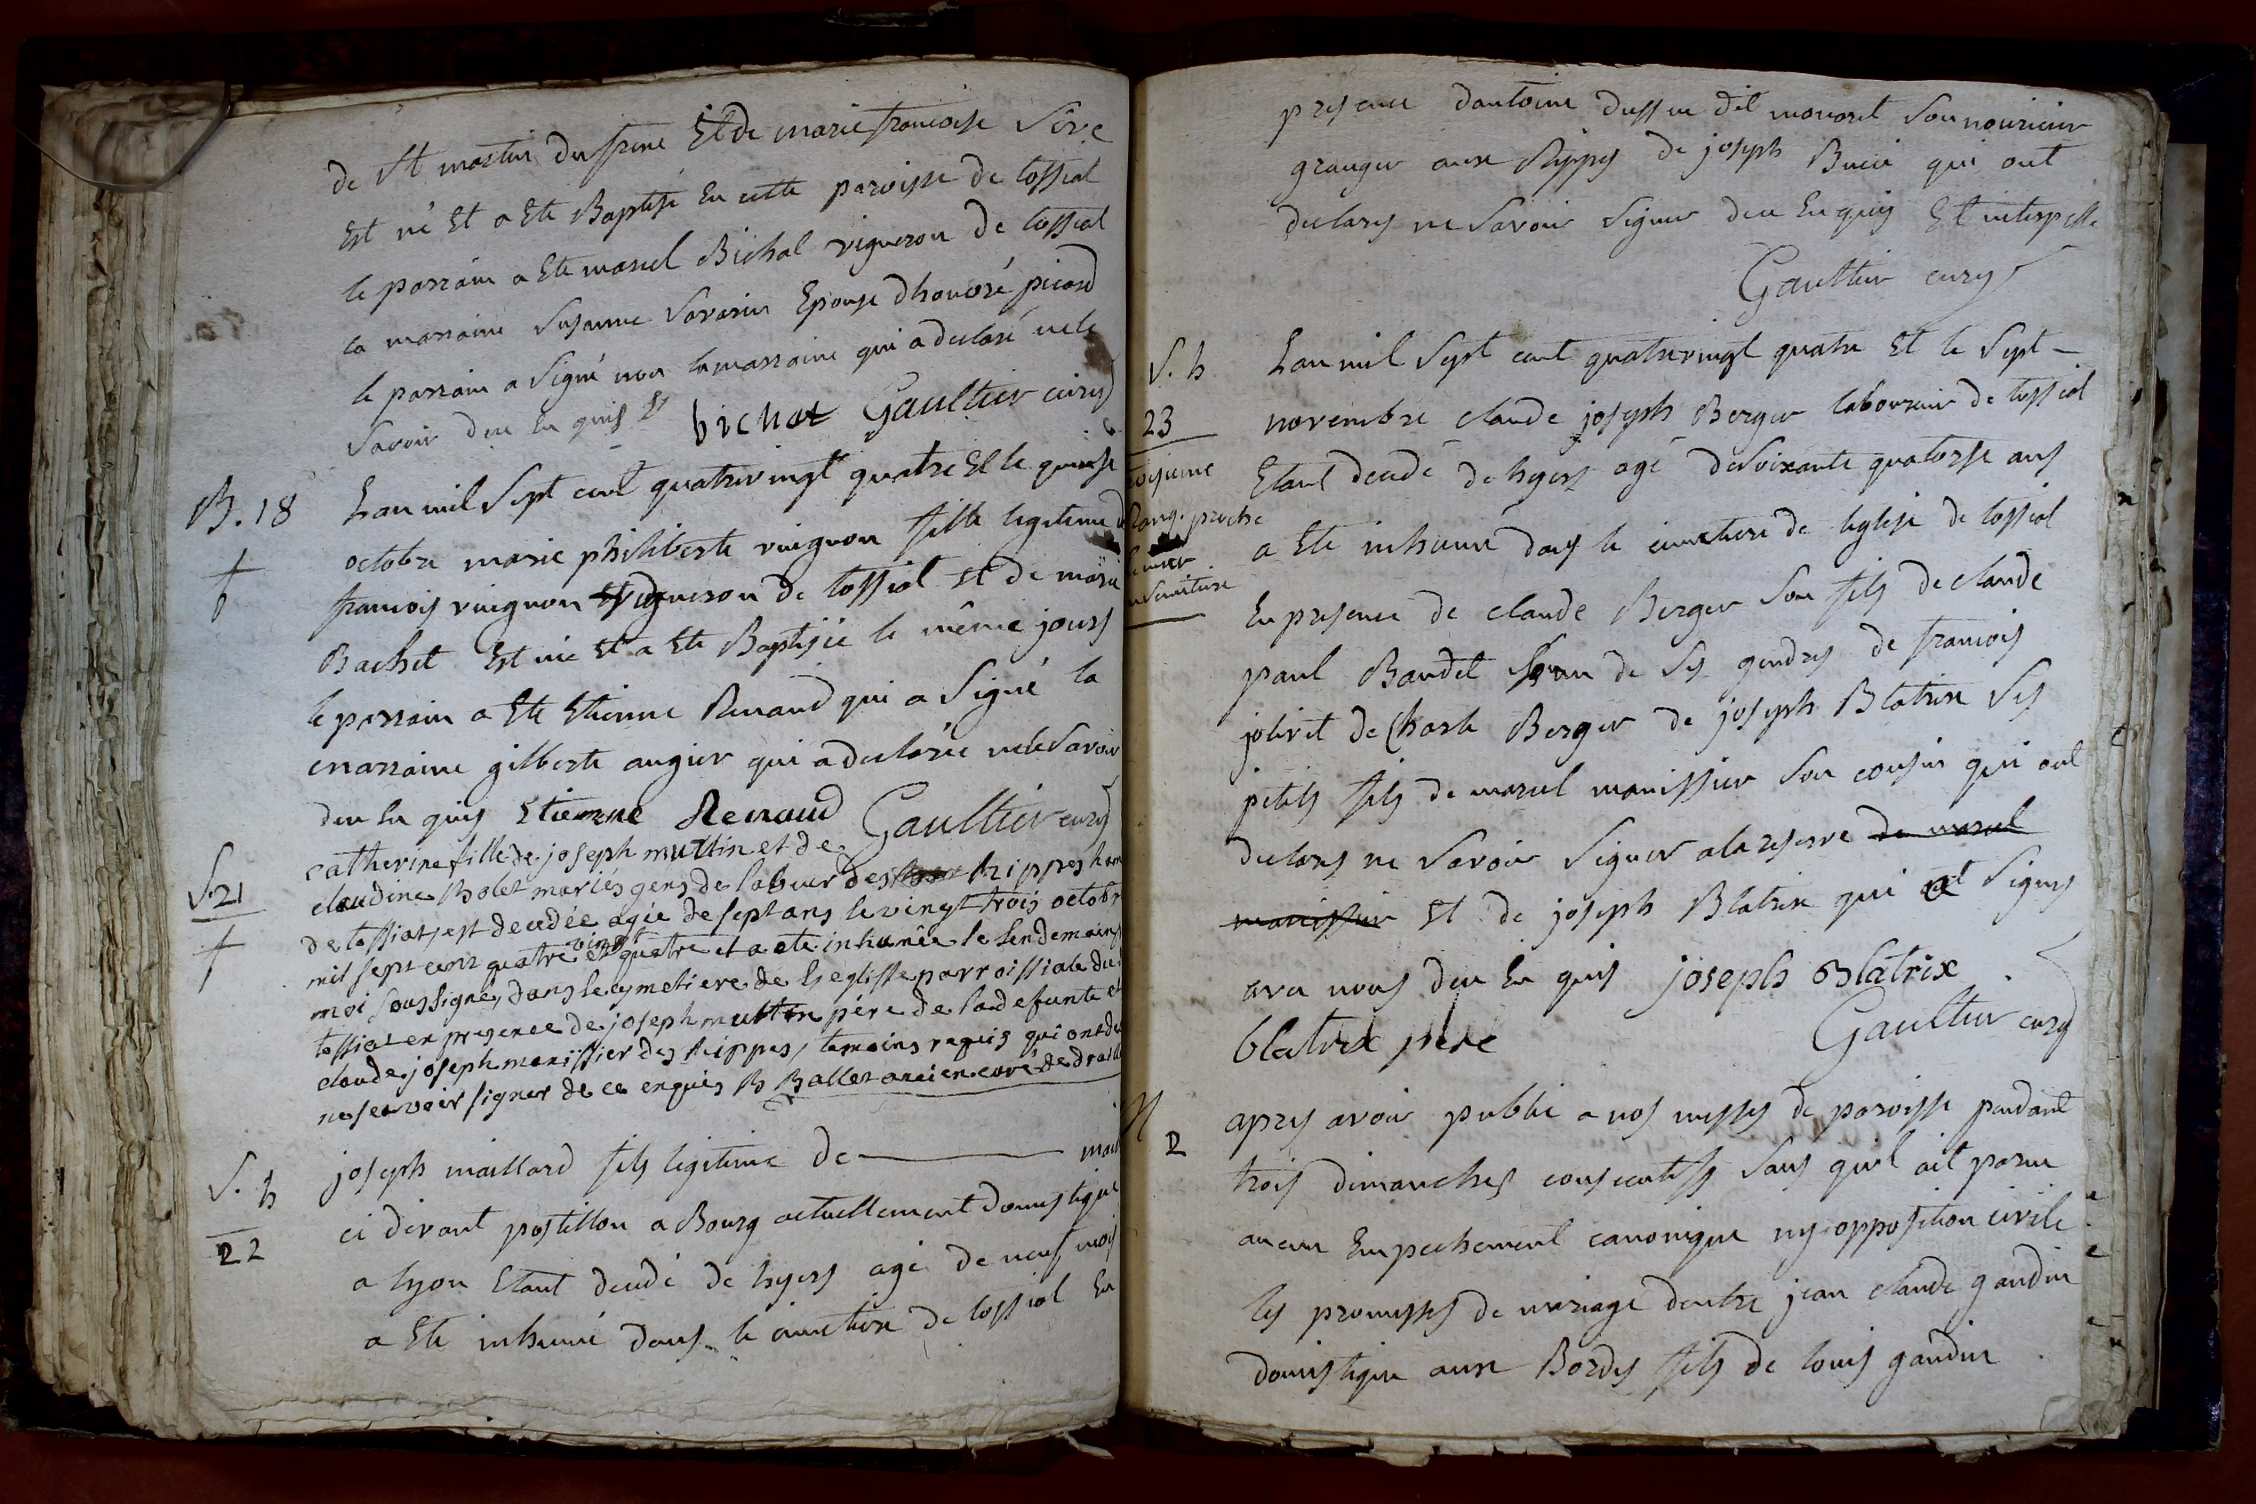 de St martin du frene Et de marie francoise Sève
Est né Et a Ete Baptisé En cette paroisse de tossiat
le parrain a Ete marcel Bichat vigneron de tossiat
la marraine Susanne Savarin Epouse dhonoré picard
le parrain a Signé non la marraine qui a declaré ne le
Savoir deu En quis Et bichat Gaultier curé
B. 18
Lan mil Sept cent quatrevingt quatre Et le quinse
octobre marie philiberte vuignon fille legitime de
francois vuignon vigneron de tossiat Et de marie
Bachet Est née Et a Ete Baptisée le même jours
le parrain a Ete Etienne Renaud qui a Signé la
marraine gilberte augier qui a declarée ne le Savoir
deu En quis Etienne Renaud Gaultier curé
S. 21
catherine fille de joseph muttin et de
claudine Bolet mariés gens de labeur des Rippes ham
de tossiat, est decedée agée de sept ans le vingt trois octobre
mil sept cent quatre vingt quatre et a ete inhumée le lendemain p
moi soussigné, dans le cymetiere de l'eglisse parroissiale du
tossiat en presence de joseph muttin père de la defunte et
claude joseph manissier des Rippes, temoins requis qui ont de
ne seavoir signer de ce enquis B Ballet ancien curé de
S. h
22
joseph maillard fils legitime de mail
ci devant postillon a Bourg actuellement domestique
a lyon Etant decedé de hyers agé de neuf mois
a Ete inhumé dans le cimetiere de tossiat En
presence dantoine dit monaret Son nouricier
granger aux Rippes de joseph qui ont
declarés ne Savoir Signer deu Enquis Et interpellé
Gaultier curé
S. h
23
Lan mil Sept cent quatrevingt quatre Et le Sept
novembre claude joseph Berger laboureur de tossiat
Etant decedé de hyers agé de Soixante quatorse ans
a Ete inhumé dans le cimetiere de leglise de tossiat
En presence de claude Berger Son fils de claude
paul Baudet lun de Ses gendres de francois
jolivet de Charle Berger de joseph Blatrix Ses
petits fils de marcel manissier Son cousin qui ont
declarés ne Savoir Signer a la reserve de marcel
manissier Et de joseph Blatrix qui a Signés
avec nous deu En quis joseph Blatrix
blatrix père Gaultier curé
M
2
apres avoir publié a nos messes de paroisse pendant
trois dimanches consecutifs Sans quil ait parue
aucun Empechement canonique ny opposition civile
les promesses de mariage dentre jean claude gaudin
domestique aux Bordes fils de louis gaudin